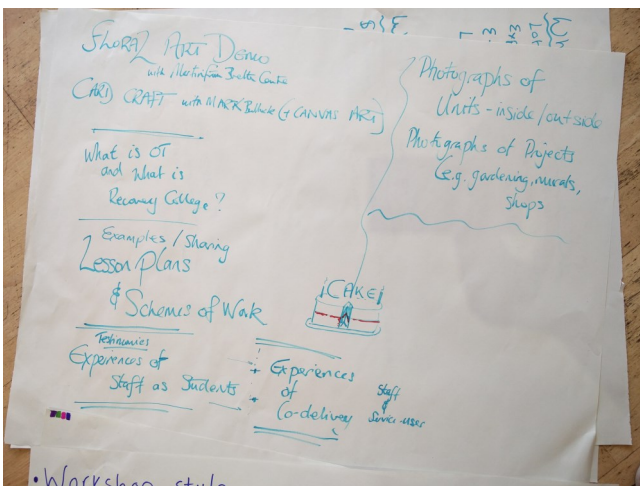 FLORAL ART DEMO
with
CARD CRAFT with MARK (+ CANVAS ART)
What is OT
and What is
Recovery College?
Examples / Sharing
Lesson Plans
& Schemes of Work
Testimonies
Experiences of
Staff as Students
Experiences
of
Co-delivery
Staff
&
Service-user
¡CAKE!
Photographs of
Units - inside/outside
Photographs of Projects
(e.g. gardening, murals,
shops
• Workshop style